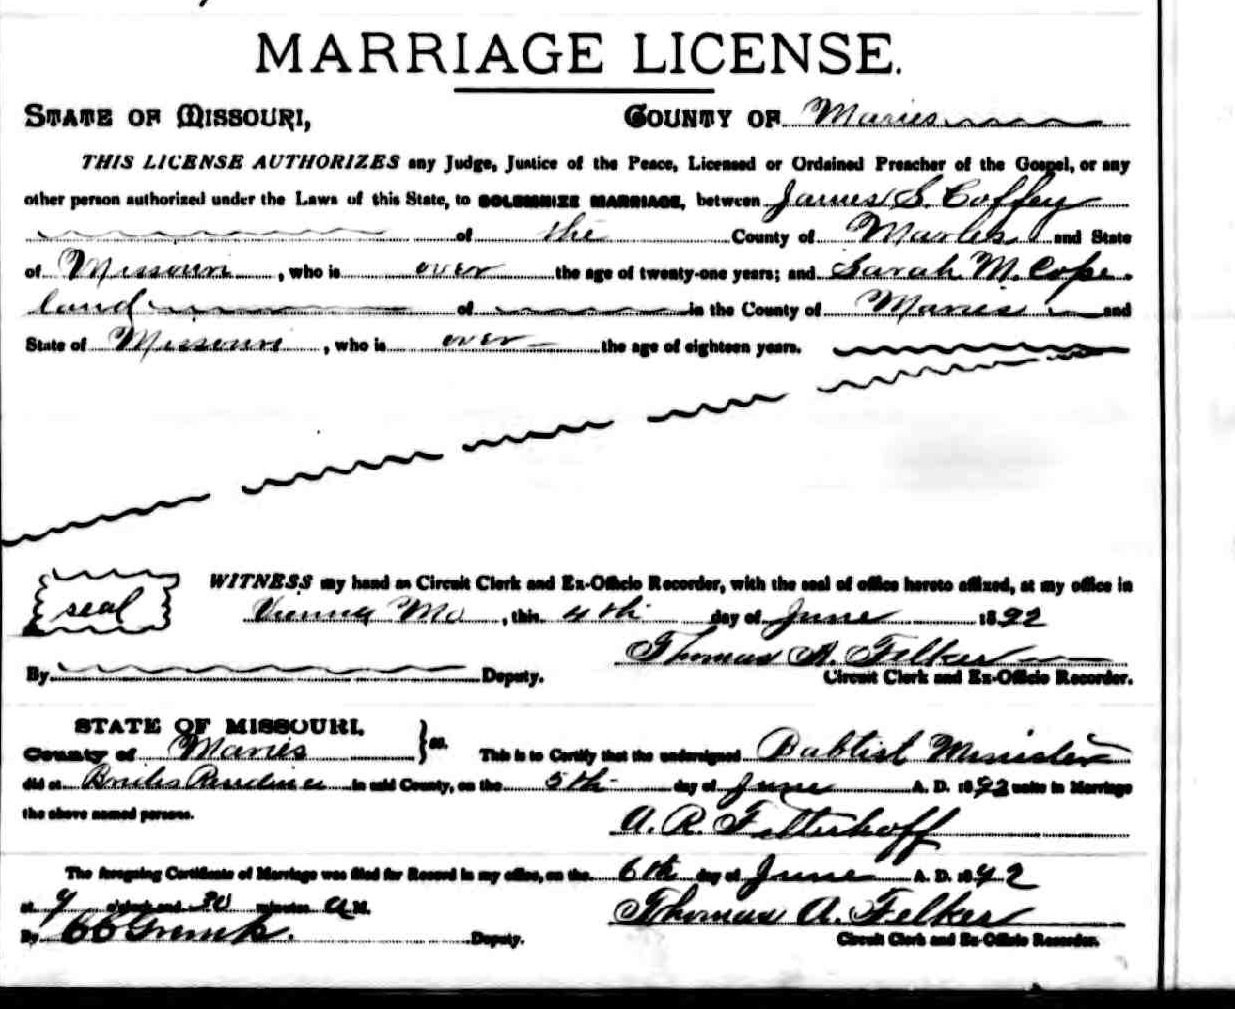 MARRIAGE LICENSE.
STATE OF MISSOURI, COUNTY OF Maries
THIS LICENSE AUTHORIZES any Judge, Justice of the Peace, Licensed or Ordained Preacher of the Gospel, or any
other person authorized under the Laws of this State, to SOLEMNIZE MARRIAGE, between James S. Coffey
of the County of Maries and State
of Missouri, who is over the age of twenty-one years; and Sarah M. Cope
land of in the County of Maries and
State of Missouri, who is over the age of eighteen years.
seal
WITNESS my hand as Circuit Clerk and Ex-Officio Recorder, with the seal of office hereto affixed, at my office in
Vienna Mo, this 4th day of June 1892
Thomas A. Felker
By Deputy. Circuit Clerk and Ex-Officio Recorder.
STATE OF MISSOURI,
County of Maries } ss. This is to Certify that the undersigned Babtist Minister
did at Brides Residence in said County, on the 5th day of June A. D. 1892 unite in Marriage
the above named persons.
A. R.
The foregoing Certificate of Marriage was filed for Record in my office, on the 6th day of June A. D. 1892
at o'clock and 30 minutes A M.
Thomas A. Felker
By CC Deputy.
Circuit Clerk and Ex-Officio Recorder.